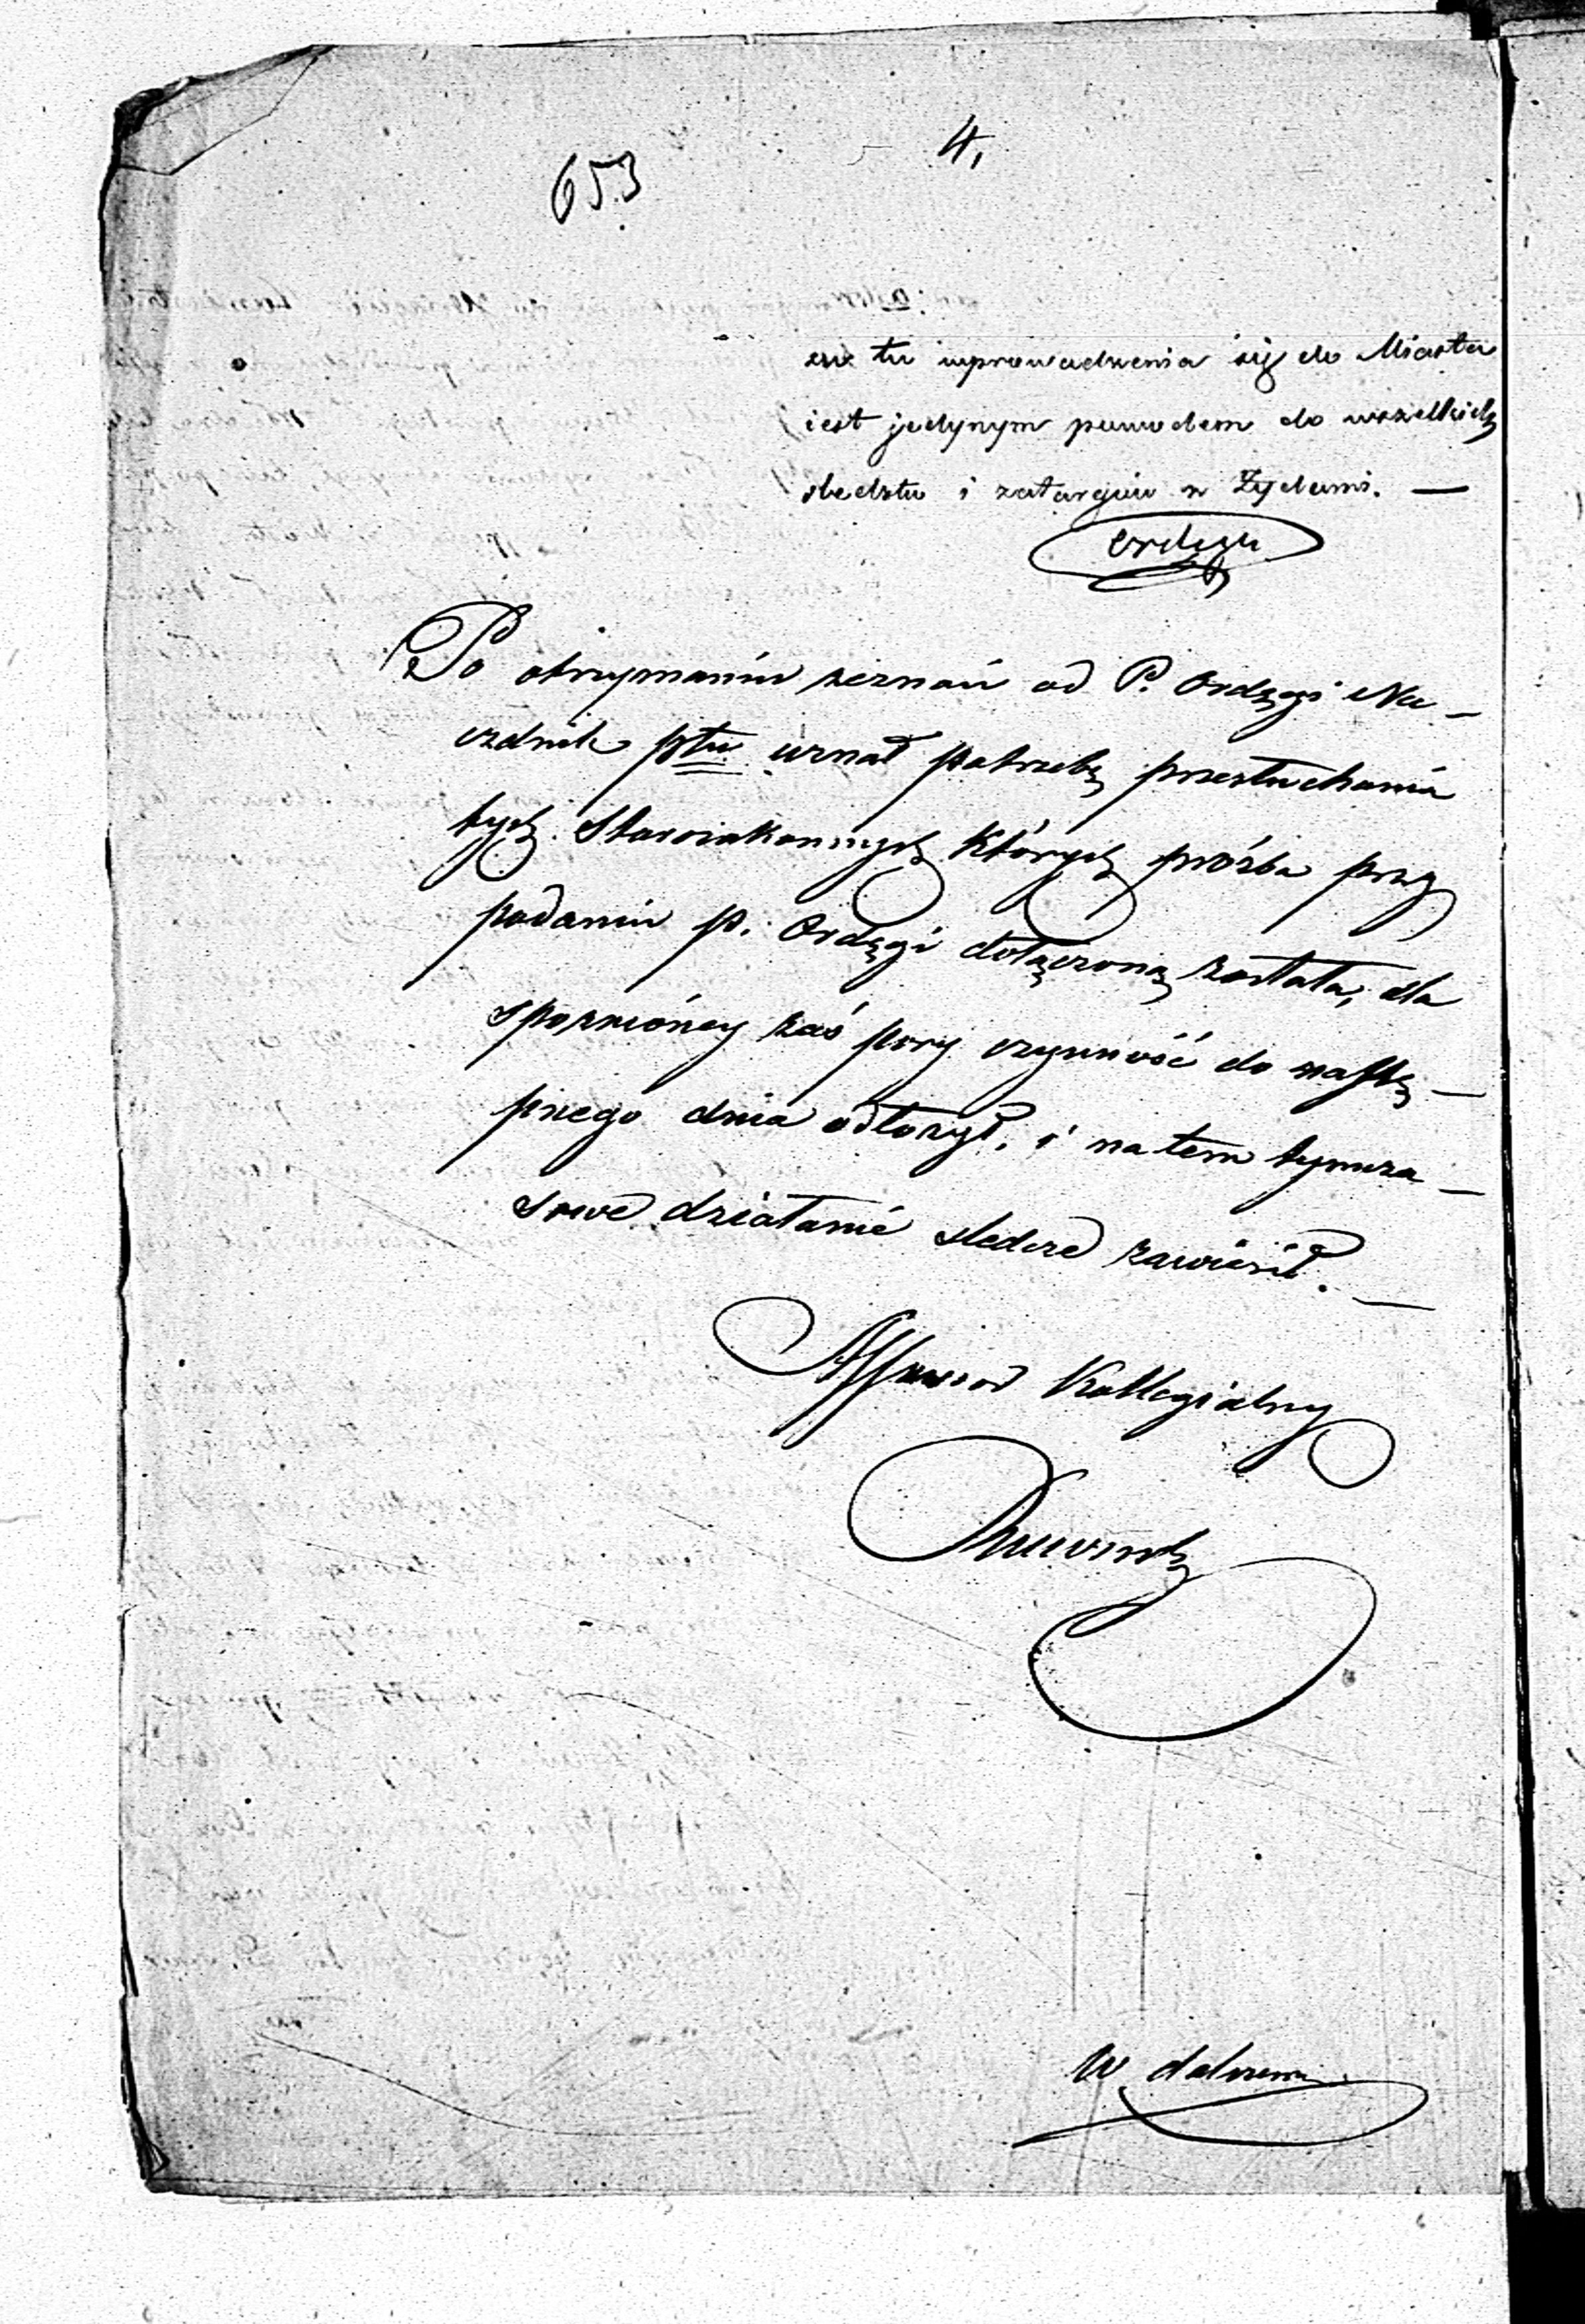 653
4,
tu wprowadzenia się do Miasta
iest jedynym powodem do wszelkich
śledztw i zatargów z Żydami. —
Ordęga
Po otrzymaniu zeznań od P. Ordęgi Na-
czelnik pttu uznał potrzebę przesłuchania
tych Starozakonnych których prożba przy
podaniu p. Ordęgi dołączoną została, dla
spoznionéy zaś pory czynność do nastę-
pnego dnia odłozył, i na tem tymcza-
sowe działanié śledcze zawiesił. —
Assessor Kollegialny
w dalszem